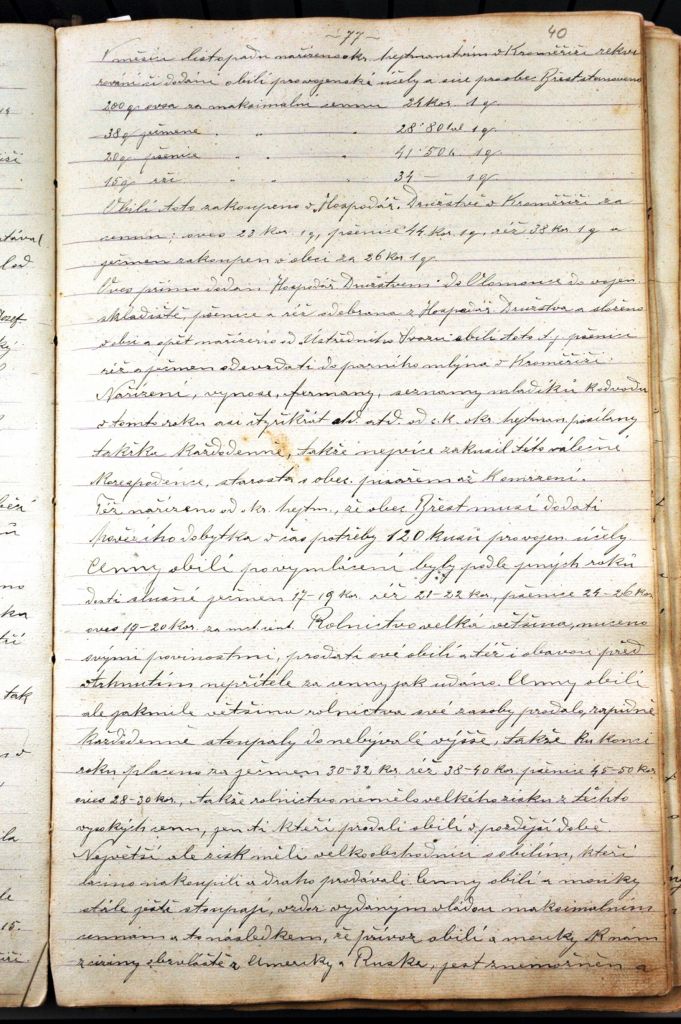 -77-
40
V měsíci listopadu nařízeno okr. hejtmanstvím v Kroměříži rekvi-
rování či dodání obilí pro vojenské účely a sice pro obec Břest stanoveno
200 q ovsa za maksimalní cennu 24 kor. 1 q.
38 q ječmene " " 28·80 hal 1 q.
20 q pšenice " " " 41·50 h 1 q.
15 q rži " " " 34 — 1 q.
Obilí toto zakoupeno v Hospodář. Družstvě v Kroměříži za
cennu: oves 23 kor. 1 q, pšenice 44 kor. 1 q, rež 38 kor. 1 q a
ječmen zakoupen v obci za 26 kor 1 q.
Oves přímo dodán Hospodář. Družstvem do Olomouce do vojen.
skladiště pšenice a rež odebrana z Hospodář. Družstva a složeno
v obci a opět nařízeno od Ústředního Svazu obilí toto t.j. pšenici
rež a ječmen odevzdati do parního mlýna v Kroměříži.
Nařízení, vynose, fermany, seznamy mladíků k odvodu
v tomto roku asi čtyřikrát atd. atd. od c.k. okr hejtman. posílany
takřka každodenně, takže nejvíce zakusil této válečné
korespodence, starosta s obec. písařem až k omrzení.
Též nařízeno od okr. hejtm., že obec Břest musí dodati
hovězího dobytka v čas potřeby 120 kusů pro vojen. účely
Cenny obilí po vymlácení byly podle jiných roků
dosti slušné ječmen 17-19 kor. rež 21-22 kor, pšenice 24-26 kor
oves 19-20 kor. za met. cent. Rolnictvo velká většina, nuceno
svými povinostmi, prodati své obilí a též i obavou před
vtrhnutím nepřítele za cenny jak udáno. Cenny obilí
ale jakmile většina rolnictva své zasoby prodala, rapidně
každodenně stoupaly do nebývalé výšše, takže ku konci
roku placeno za ječmen 30-32 kor rež 38-40 kor. pšenice 45-50 kor
oves 28-30 kor., takže rolnictvo nemělo velkého zisku z těchto
vysokých cenn, jen ti kteří prodali obilí v pozdější době.
Největší ale zisk měli velkoobchodníci s obilím, kteří
lacino nakoupili a draho prodávali. Cenny obilí a mouky
stále ještě stoupají, vzdor vydaným vládou maksimalním
cennam a to následkem, že přívoz obilí a mouky k nám
z ciziny obzvláště z Ameriky a Ruska, jest znemožněn a